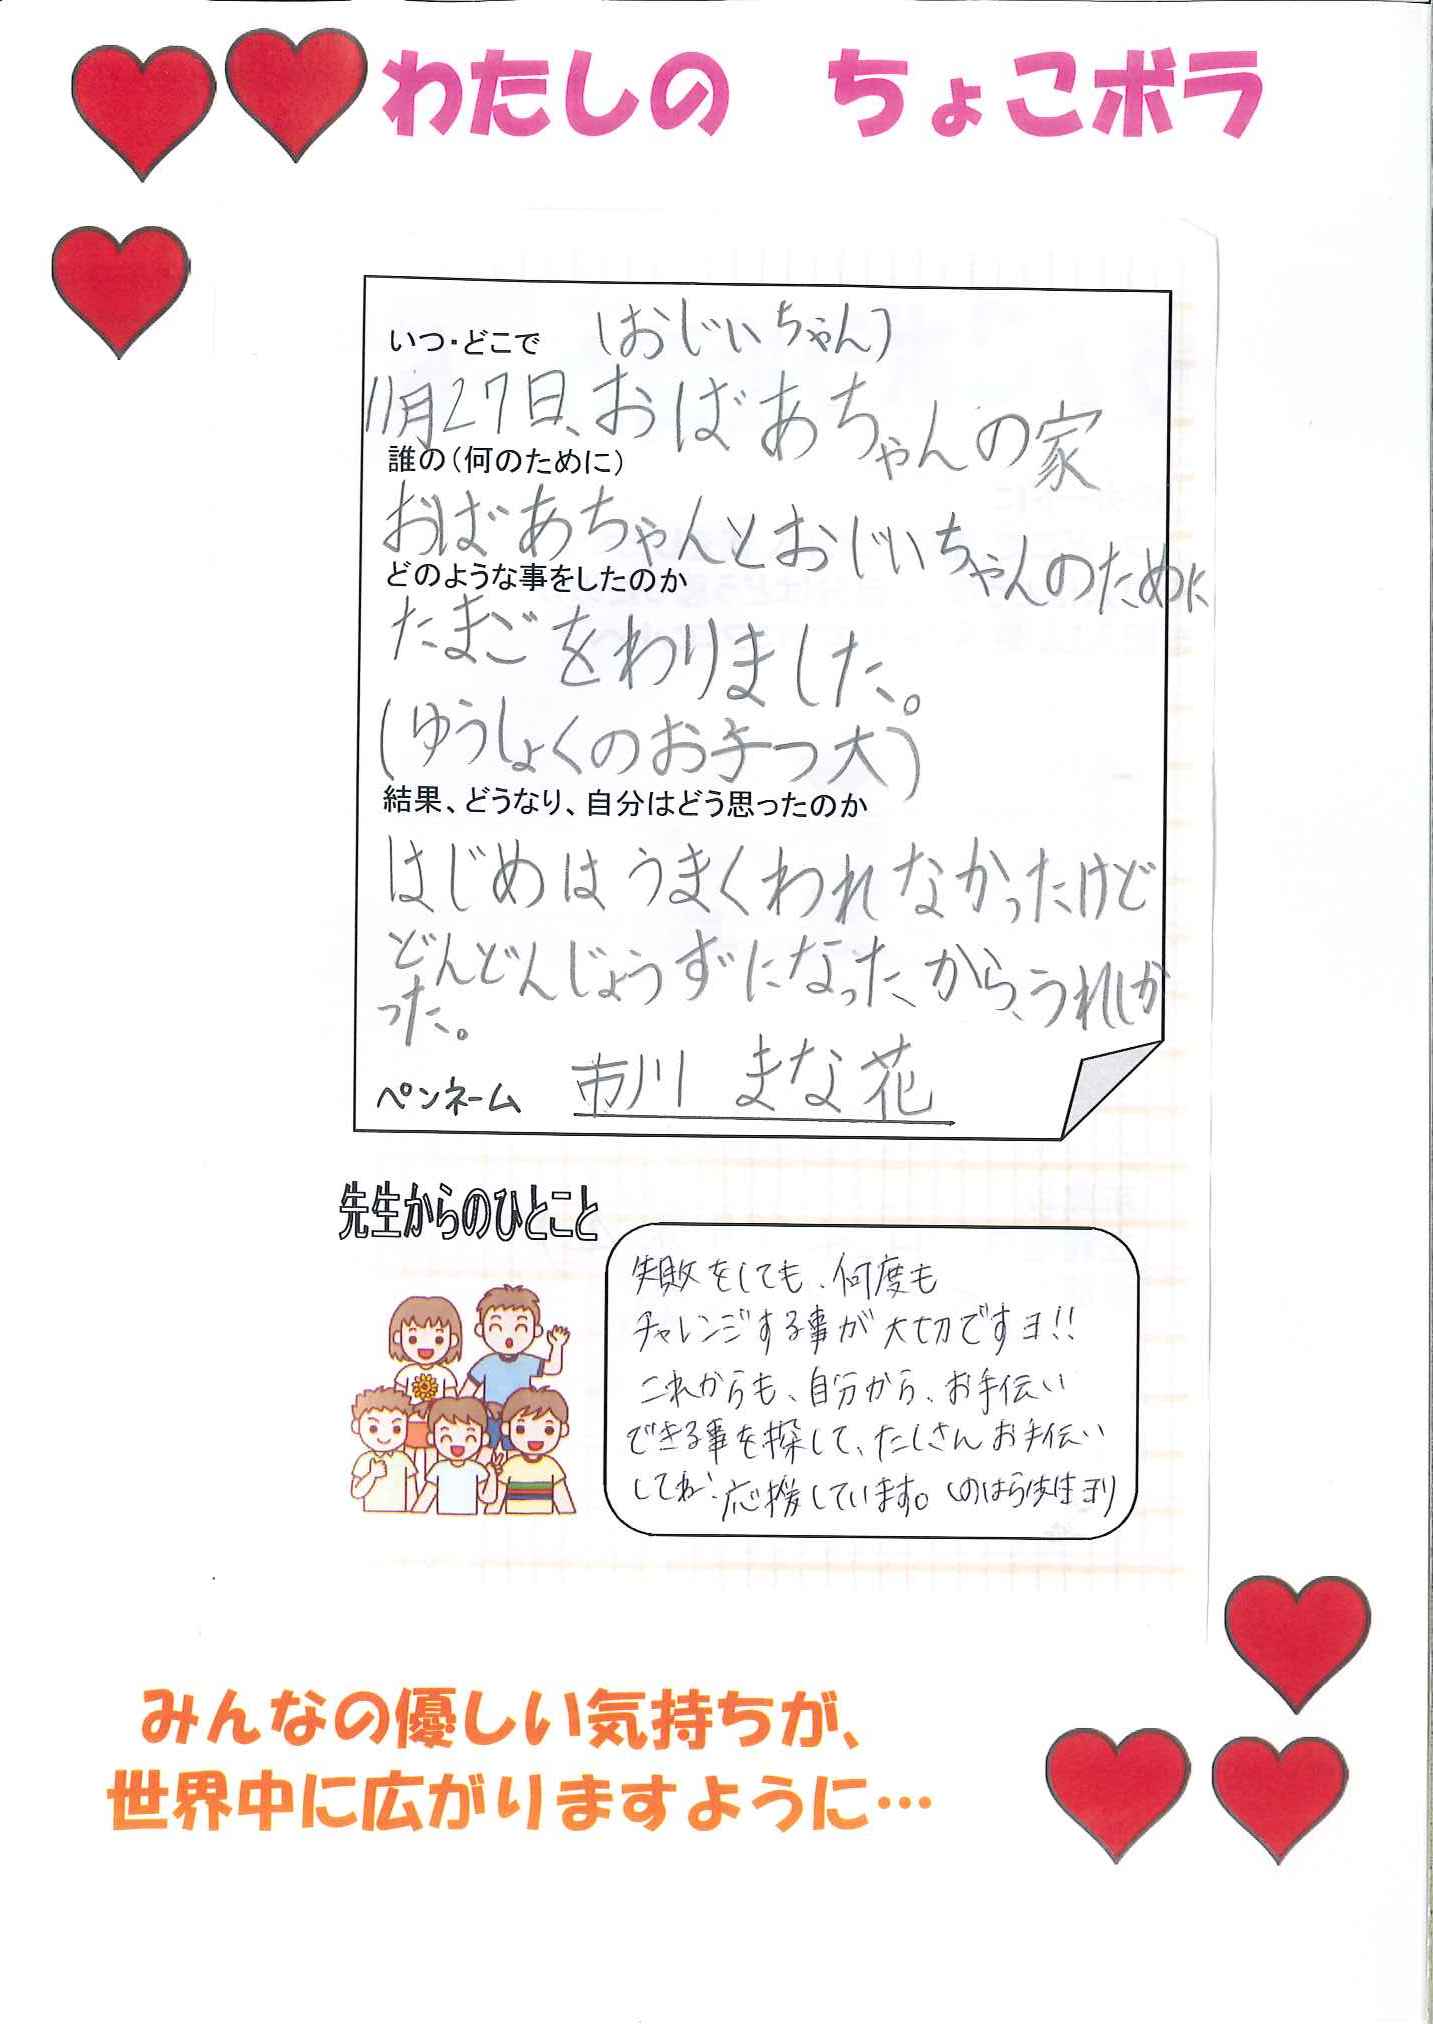 わたしの　ちょこボラ
いつ・どこで
(おじいちゃん)
11月27日、おばあちゃんの家
誰の(何のために)
おばあちゃんとおじいちゃんのために
どのような事をしたのか
たまごをわりました。
(ゆうしょくのお手つ大)
結果、どうなり、自分はどう思ったのか
はじめはうまくわれなかったけど
どんどんじょうずになったから、うれしか
った。
ペンネーム　市川 まな花
先生からのひとこと
失敗をしても、何度も
チャレンジする事が大切ですヨ!!
これからも、自分から、お手伝い
できる事を探して、たくさんお手伝い
してね。応援しています。しのはらはは ヨリ
みんなの優しい気持ちが、
世界中に広がりますように…